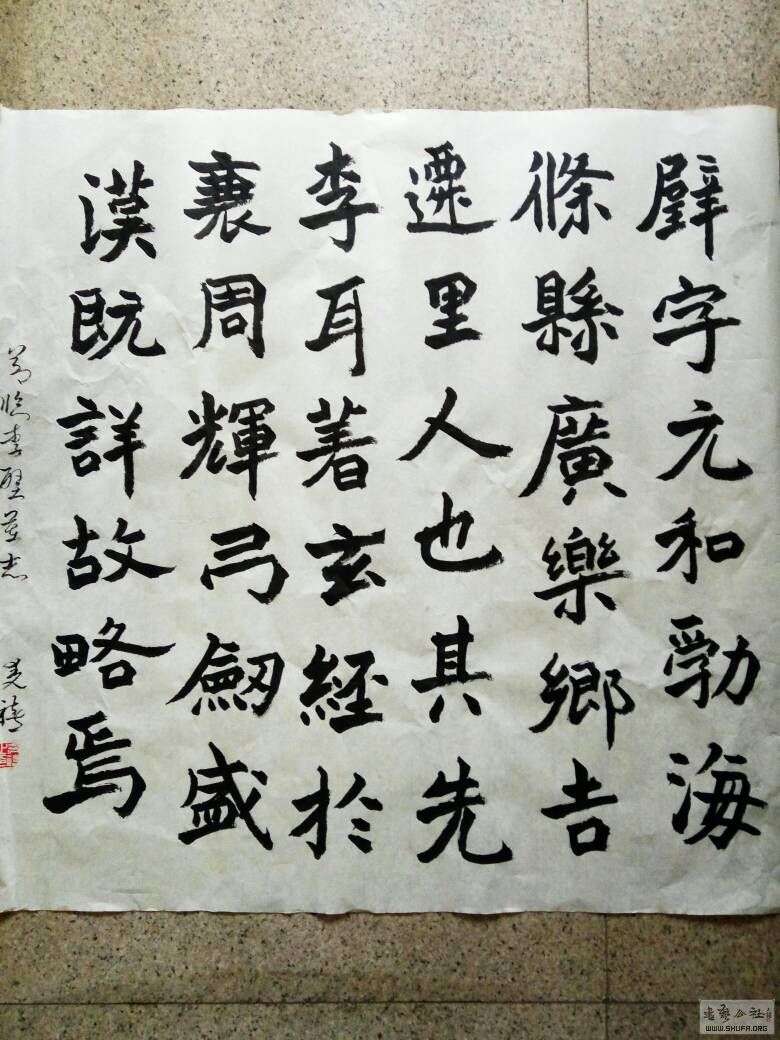 璧字元和勃海
條縣廣樂鄉吉
遷里人也其先
李耳著玄經於
衰周輝弓劒盛
漢既詳故略焉
節臨李壁墓志
書藝公社
WWW.SHUFA.ORG